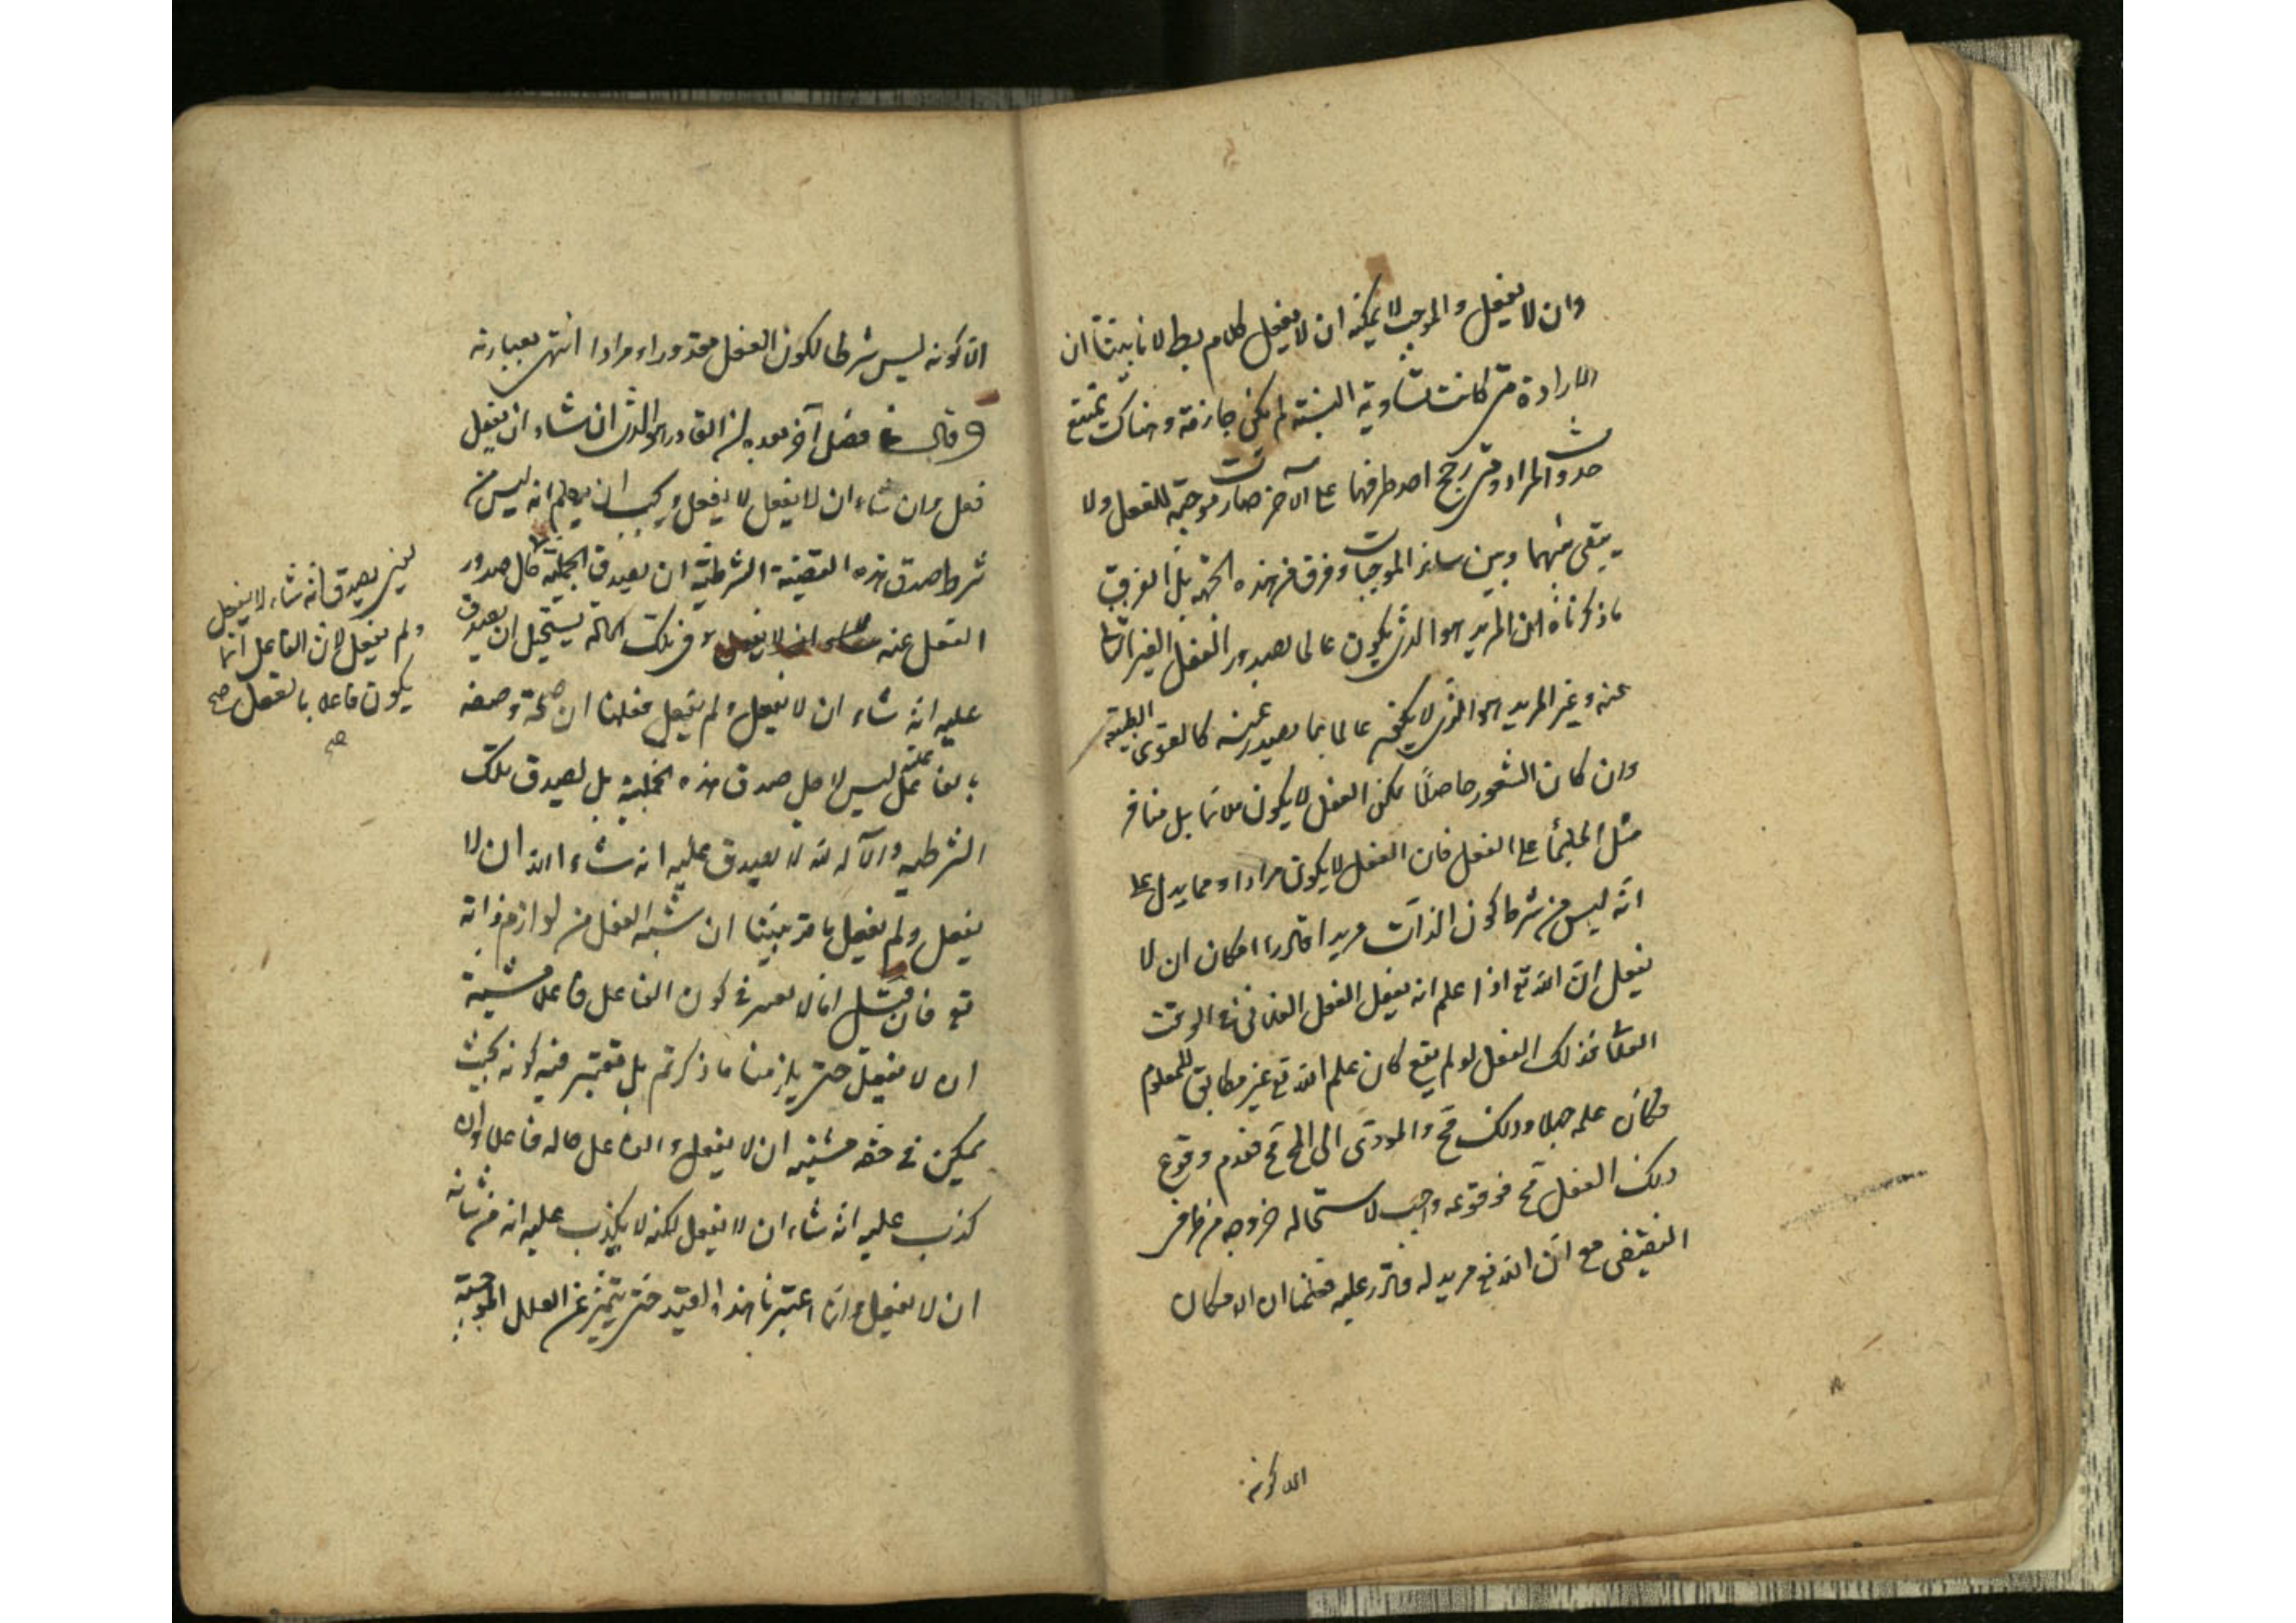 وان لا يفعل والموجب لا يمكنه ان لا يفعل كلام بط لانا بينا ان
الارادة متى كانت متساوية النسبة لم يكن جازمة وهناك يمتنع
حدوث المراد ومتى ترجح احد طرفيها على الآخر صارت موجبة للفعل ولا
يبقى بينهما وبين سائر الموجبات فرق من هذه الجهة بل الفرق
ما ذكرناه ان المريد هو الذى يكون عالما بصدور الفعل الغير المنافى
عنه وغير المريد هو الذى لا يكون عالما بما يصدر عنه كالقوى الطبيعية
وان كان الشعور حاصلا لكن الفعل لا يكون ملائما بل منافر
مثل الملجأ على الفعل فان الفعل لا يكون مرادا ومما يدل على
انه ليس من شرط كون الذات مريدا قادرا امكان ان لا
يفعل ان الله تع اذا علم انه يفعل الفعل الفلانى فى الوقت
الفلانى فذلك الفعل لو لم يقع كان علم الله تع غير مطابق للمعلوم
فكان علمه جهلا وذلك مح والمودى الى المح مح فعدم وقوع
ذلك الفعل مح فوقوعه واجب لاستحاله خروجه من طرفى
النقيضين مع ان الله تع مريد له قادر عليه فعلمنا ان امكان
اللا كونه
اللا كونه ليس شرطا لكون الفعل مقدورا ومرادا انتهى بعبارته
وقال فى فصل آخر بعده ان القادر هو الذى ان شاء ان يفعل
فعل وان شاء ان لا يفعل لا يفعل ويجب ان يعلم انه ليس من
شرط صدق هذه القضية الشرطية ان يصدق الحملية حال صدور
الفعل عنه فى تلك الحالة يستحيل ان يصدق
عليه انه شاء ان لا يفعل ولم يفعل فعلمنا ان صحة وصفه
بالفاعلية ليس لاجل صدق هذه الحملية بل لصدق تلك
الشرطيه والآله لا يصدق عليه انه شاء ان لا
يفعل ولم يفعل ما قد بينا ان مشية الفعل من لوازم ذاته
تع فان قيل انا لا نعتبر فى كون الفاعل فاعلا مشية
ان لا يفعل حتى يلزمنا ما ذكرتم بل نعتبر فيه كونه بحيث
يمكن فى حقه مشية ان لا يفعل والفاعل حاله فاعلا وان
كذب عليه انه شاء ان لا يفعل لكنه لا يكذب عليه انه من شانه
ان لا يفعل وانما اعتبرنا هذا القيد حتى يتميز عن العلل الموجبة
ليس يصدق انه شاء لا يفعل
ولم يفعل لان الفاعل انما
يكون فاعلا بالفعل صح
صح